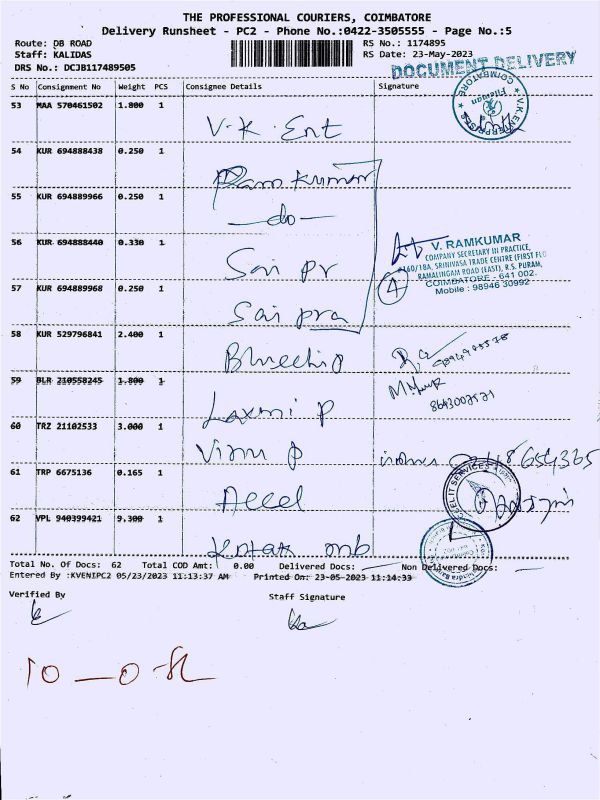 THE PROFESSIONAL COURIERS, COIMBATORE
Delivery Runsheet - PC2 - Phone No.:0422-3505555 - Page No.:5
Route: DB ROAD
RS No.: 1174895
Staff: KALIDAS
RS Date: 23-May-2023
DRS No.: DCJB117489505
DOCUMENT DELIVERY
S No Consignment No Weight PCS Consignee Details Signature
53 MAA 570461502 1.800 1
V.K. Ent
V.K. ENTERPRISES COIMBATORE
54 KUR 694888438 0.250 1
Ram kumar
55 KUR 694889966 0.250 1
-do-
56 KUR 694888440 0.330 1
Sai Pr
V. RAMKUMAR
COMPANY SECRETARY IN PRACTICE,
SRINIVASA TRADE CENTRE (FIRST FLO
RAMALINGAM ROAD (EAST), R.S. PURAM,
COIMBATORE - 641 002.
Mobile : 98946 30992
4
57 KUR 694889968 0.250 1
Sai pra
58 KUR 529796841 2.400 1
59 BLR 210558245 1.800 1
Laxmi P
60 TRZ 21102533 3.000 1
61 TRP 6675136 0.165 1
Accel
62 VPL 940399421 9.300 1
Total No. Of Docs: 62 Total COD Amt: 0.00 Delivered Docs: Non Delivered Docs:
Entered By :KVENIPC2 05/23/2023 11:13:37 AM Printed On: 23-05-2023 11:14:33
Verified By
Staff Signature